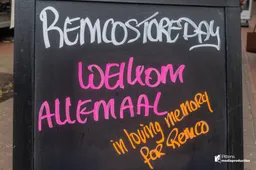 REMCOSTOREDAY
WELKOM
ALLEMAAL
in loving memory
for Remco
mediaproduction